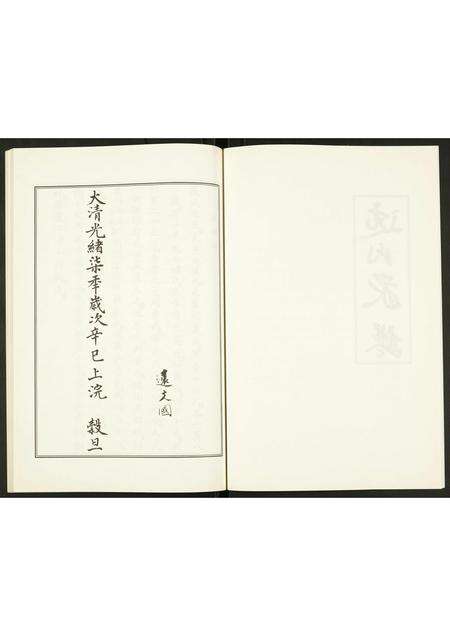 文國
大清光緒柒秊歲次辛巳上浣 穀旦